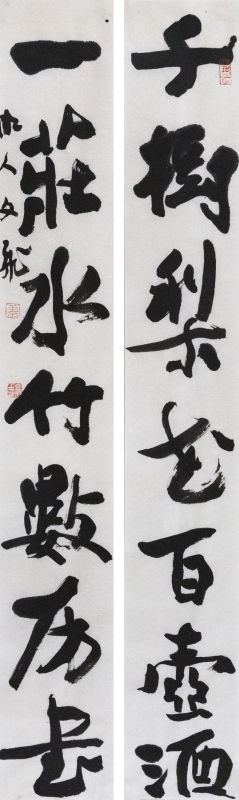 千樹梨花百壺酒
一莊水竹數房書
木人文飛